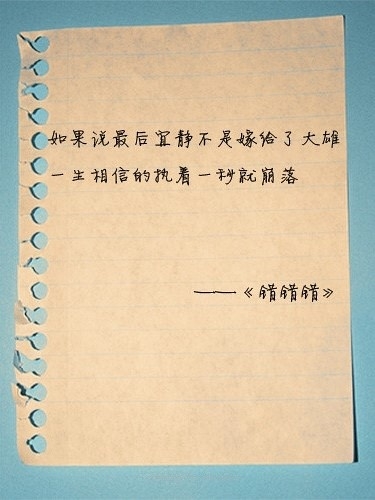 如果说最后宜静不是嫁给了大雄
一生相信的执着一秒就崩落
——《错错错》